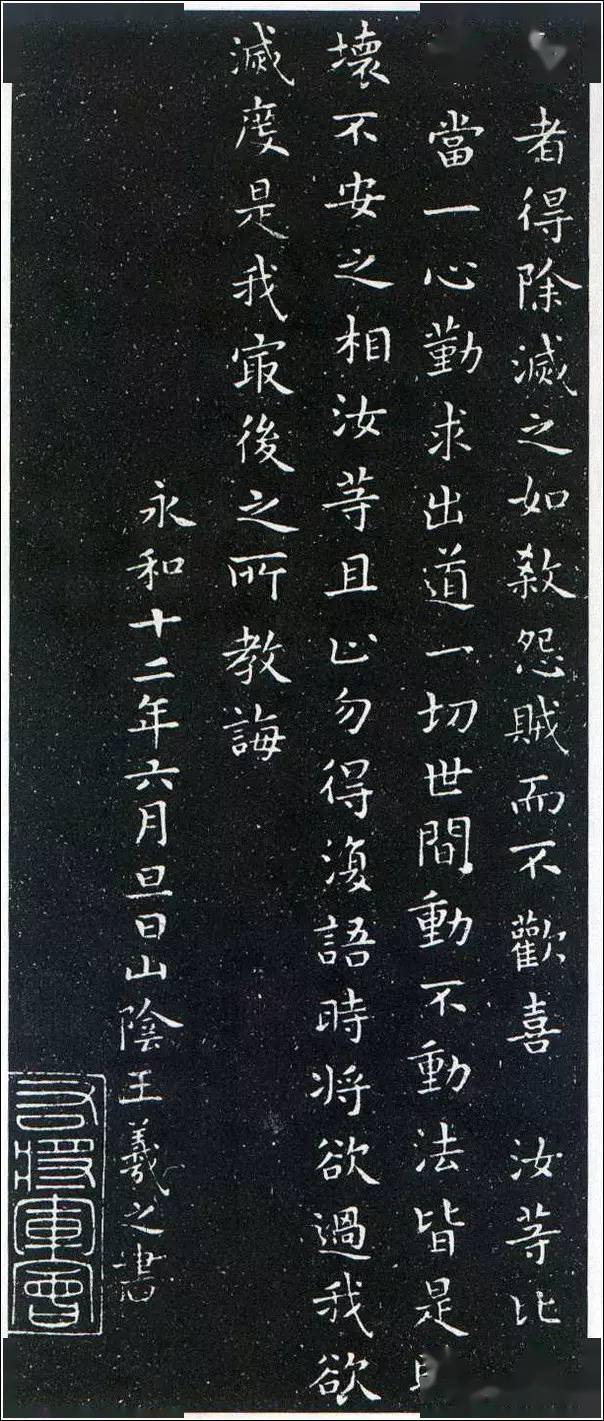 者得除滅之如殺怨賊而不歡喜 汝等比
當一心勤求出道一切世間動不動法皆是
壞不安之相汝等且止勿得復語時将欲過我欲
滅度是我寂後之所教誨
永和十二年六月旦日山陰王羲之書
右將軍會